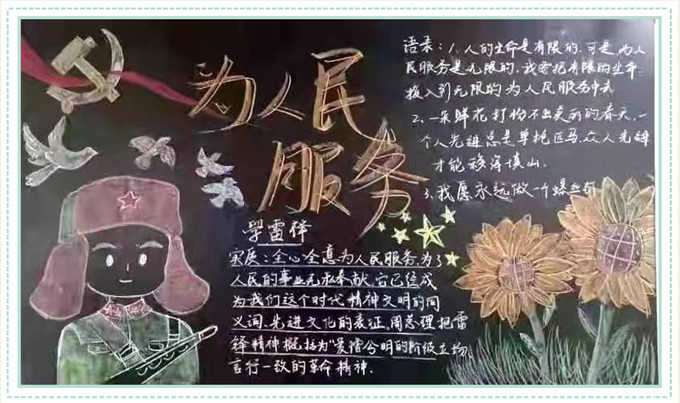 为人民
服务
语录：1、人的生命是有限的，可是为人
民服务是无限的，我要把有限的生命
投入到无限的为人民服务中去
2、一朵鲜花打扮不出美丽的春天，一
个人先进总是单枪匹马，众人先进
才能移海填山。
3、我愿永远做一个螺丝钉
学雷锋
实质：全心全意为人民服务，为了
人民的事业无私奉献，它已经成
为我们这个时代精神文明的同
义词、先进文化的表征，周总理把雷
锋精神概括为“爱憎分明的阶级立场、
言行一致的革命精神.